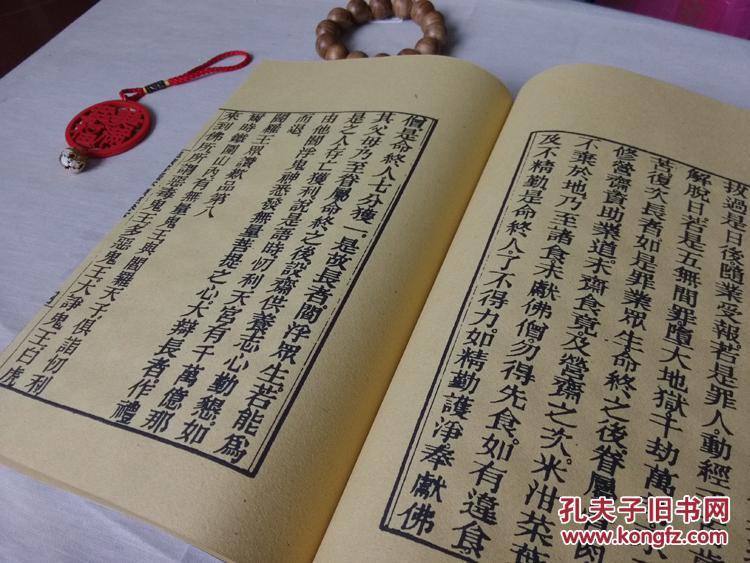 拔過是日後隨業受報若是罪人動經
解脫日若是五無間罪墮大地獄千劫萬
苦復次長者如是罪業眾生命終之後眷屬骨肉
修營齋資助業道未齋食竟及營齋之次米泔菜葉
不棄於地乃至諸食未獻佛僧勿得先食如有違食
及不精勤是命終人了不得力如精勤護淨奉獻佛
僧是命終人七分獲一是故長者閻浮眾生若能為
其父母乃至眷屬命終之後設齋供養志心勤懇如
是之人存亡獲利說是語時忉利天宮有千萬億那
由他閻浮鬼神悉發無量菩提之心大辯長者作禮
而退
閻羅王眾讚歎品第八
爾時鐵圍山內有無量鬼王與閻羅天子俱詣忉利
來到佛所所謂惡毒鬼王多惡鬼王大諍鬼王白虎
孔夫子旧书网
www.kongfz.com